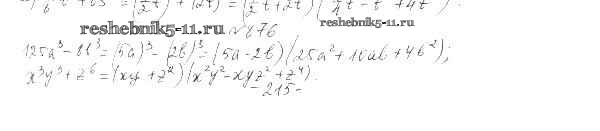 = (1/2 t)³ + (2t)³ = (1/2 t + 2t)(1/4 t - t² + 4t²).
reshebnik5-11.ru
reshebnik5-11.ru
№ 676
125a³ - 8b³ = (5a)³ - (2b)³ = (5a - 2b)(25a² + 10ab + 4b²);
x³y³ + z⁶ = (xy + z²)(x²y² - xyz² + z⁴).
- 215 -